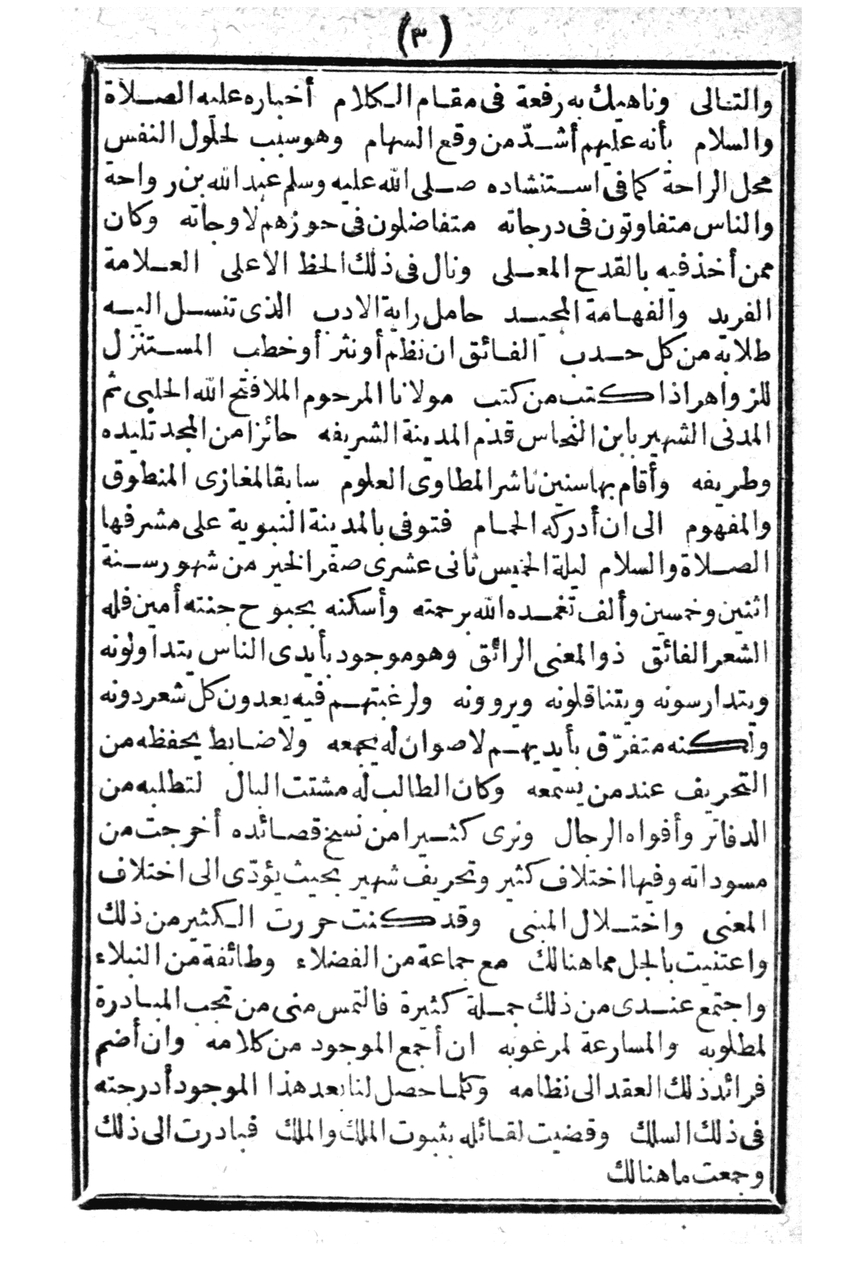 (٣)
والتالى وناهيك به رفعة فى مقام الكلام أخباره عليه الصلاة
والسلام بأنه عليهم أشدّ من وقع السهام وهو سبب لحلول النفس
محل الراحة كما فى استنشاده صلى الله عليه وسلم عبد الله بن رواحة
والناس متفاوتون فى درجاته متفاضلون فى حوزهم لاوجاته وكان
ممن أخذ فيه بالقدح المعلى ونال فى ذلك الحظ الاعلى العلامة
الفريد والفهامة المجيد حامل راية الادب الذى تنسل اليه
طلابه من كل حدب الفائق ان نظم أو نثر أو خطب المستنزل
للزواهر اذا كتب من كتب مولانا المرحوم الملا فتح الله الحلبى ثم
المدنى الشهير بابن النحاس قدم المدينة الشريفه حائزا من المجد تليده
وطريفه وأقام بها سنين ناشرا لمطاوى العلوم سابقا لمغازى المنطوق
والمفهوم الى ان أدركه الحمام فتوفى بالمدينة النبوية على مشرفها
الصلاة والسلام ليلة الخميس ثانى عشرى صفر الخير من شهور سنة
اثنين وخمسين وألف تغمده الله برحمته وأسكنه بحبوح جنته أمين فله
الشعر الفائق ذو المعنى الرائق وهو موجود بأيدى الناس يتداولونه
ويتدارسونه ويتناقلونه ويروونه ولرغبتهم فيه يعدون كل شعر دونه
ولكنه متفرّق بأيديهم لا صوان له يجمعه ولا ضابط يحفظه من
التحريف عند من يسمعه وكان الطالب له مشتت البال لتطلبه من
الدفاتر وأفواه الرجال ونرى كثيرا من نسخ قصائده أخرجت من
مسوداته وفيها اختلاف كثير وتحريف شهير بحيث يؤدّى الى اختلاف
المعنى واختلال المبنى وقد كنت حررت الكثير من ذلك
واعتنيت بالجل مما هنالك مع جماعة من الفضلاء وطائفة من النبلاء
واجتمع عندى من ذلك جملة كثيرة فالتمس منى من تجب المبادرة
لمطلوبه والمسارعة لمرغوبه ان أجمع الموجود من كلامه وان أضم
فرائد ذلك العقد الى نظامه وكلما حصل لنا بعد هذا الموجود أدرجته
فى ذلك السلك وقضيت لقائله بثبوت الملك والملك فبادرت الى ذلك
وجمعت ما هنالك